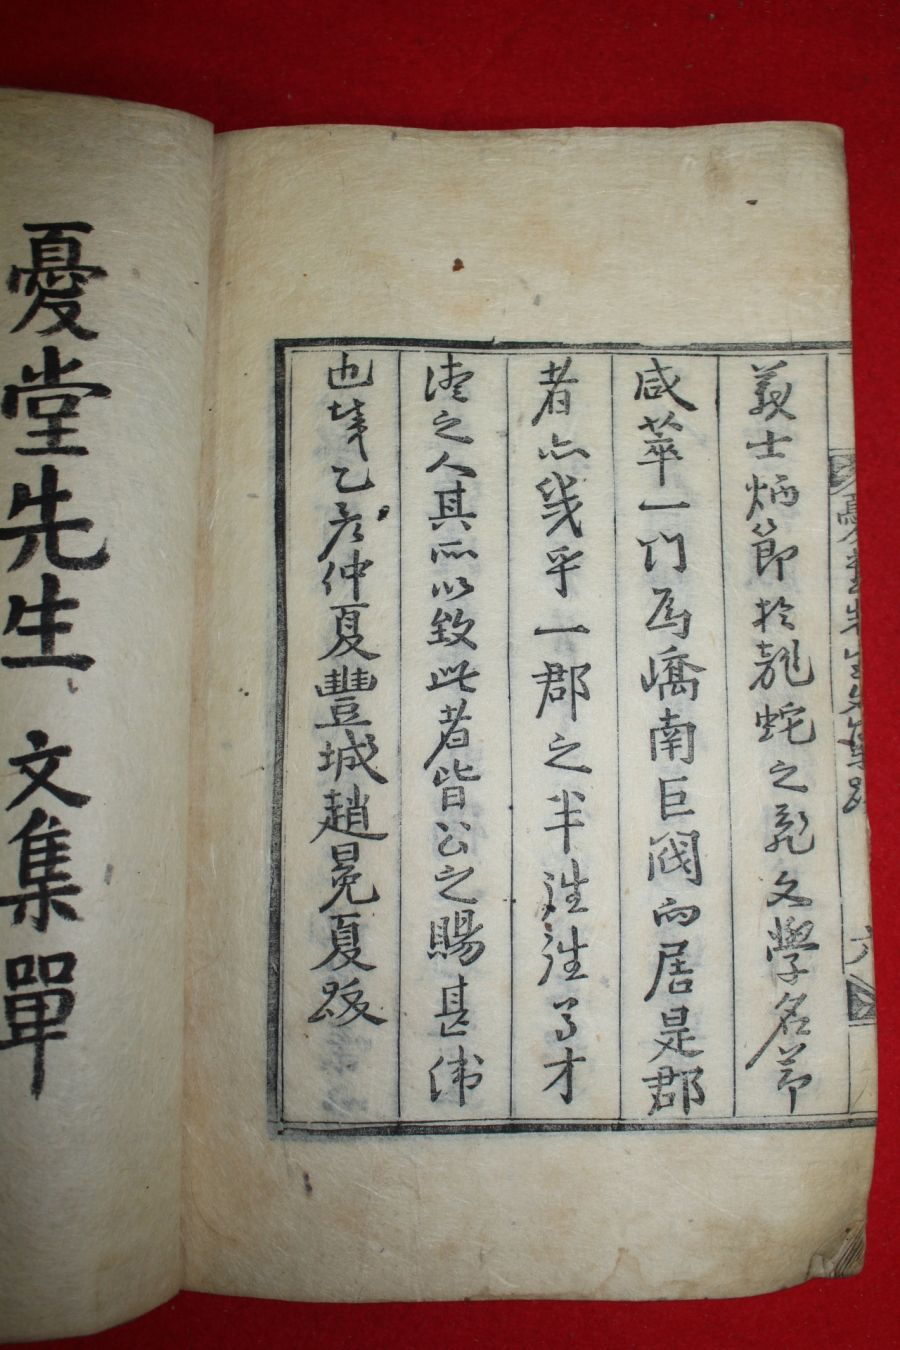 憂堂先生文集跋
六
義士炳節於龍蛇之亂文學名節
咸萃一門爲嶠南巨閥而居是郡
者亦幾乎一郡之半往往多才
之人其所以致此者皆公之賜甚偉
也歲乙亥仲夏豐城趙冕夏跋
憂堂先生文集單